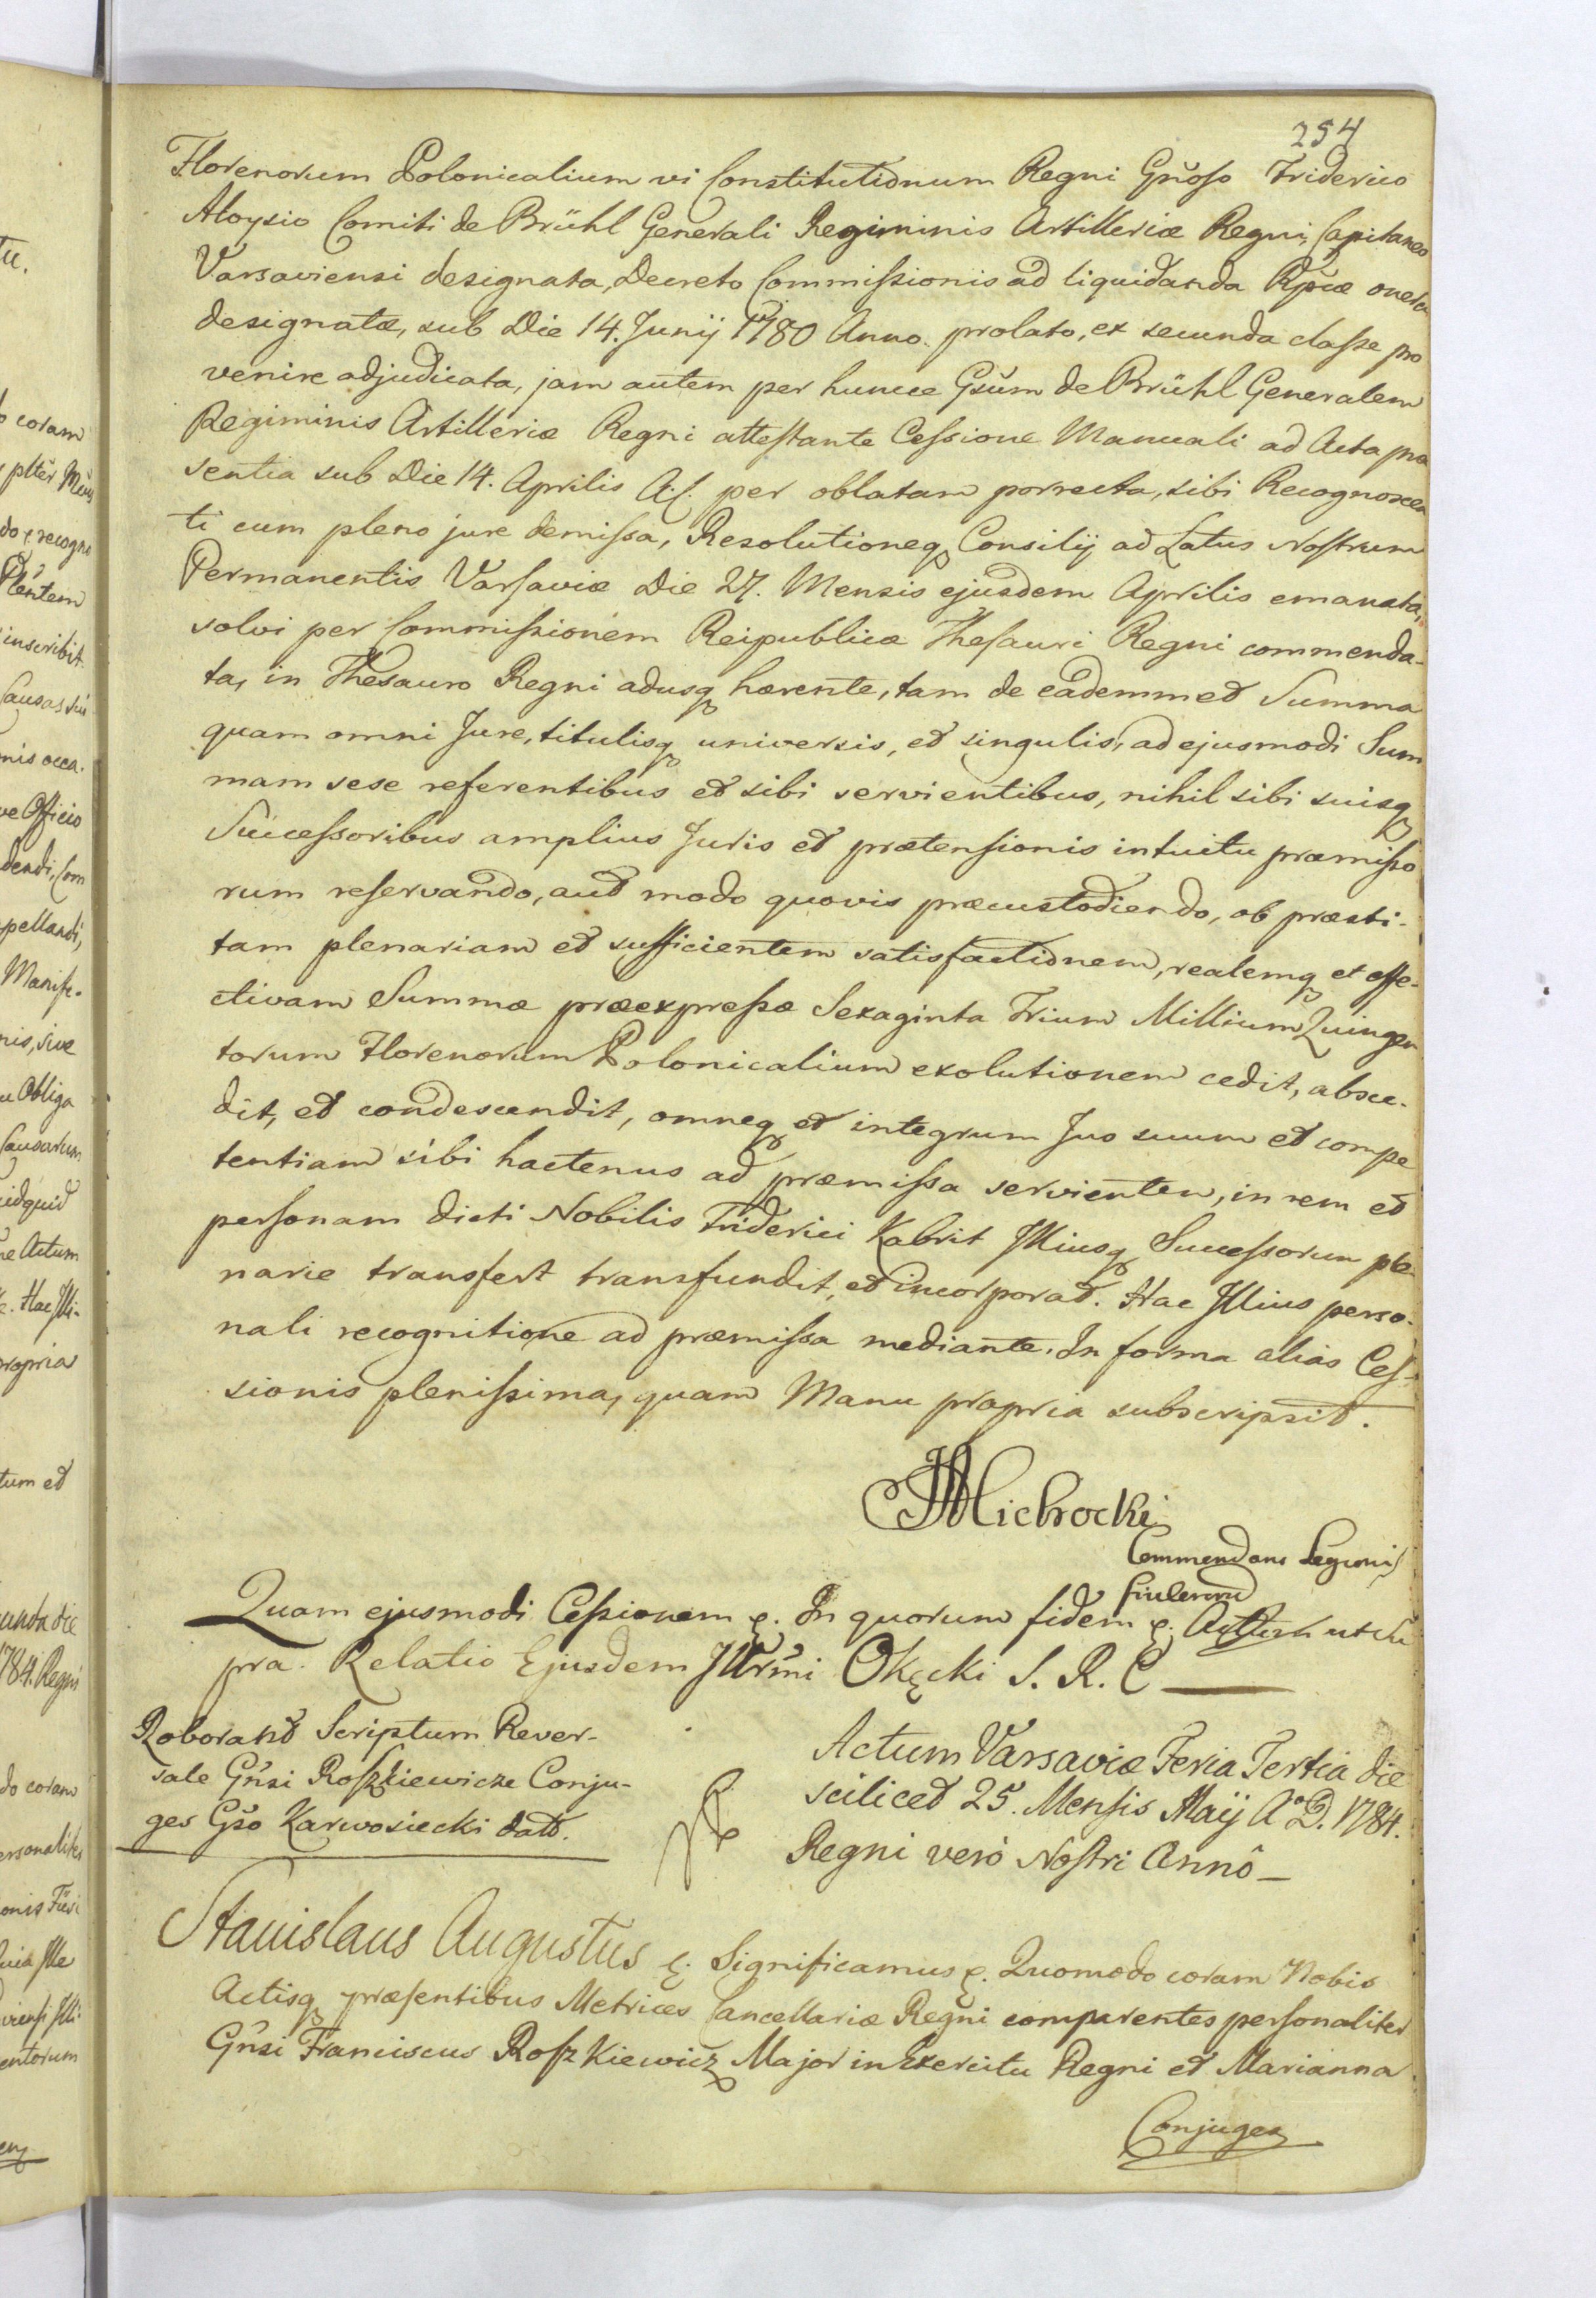 254
Florenorum Polonicalium vi Constitutionum Regni Gnoso Friderico
Aloysio Comiti de Brühl Generali Regiminis Artilleriæ Regni, Capitaneo
Varsaviensi designata, Decreto Commissionis ad liquidanda Rpcæ onera
designatæ, sub Die 14. Junij 1780 Anno. prolato, ex secunda classe pro
venire adjudicata, jam autem per huncce Gsum de Brühl Generalem
Regiminis Artilleriæ Regni attestante Cessione Manuali ad Acta præ
sentia sub Die 14. Aprilis A.C. per oblatam porrecta, sibi Recognoscen
ti cum pleno jure demissa, Resolutioneq Consilij ad Latus Nostrum
Permanentis Varsaviæ Die 27. Mensis ejusdem Aprilis emanata,
solvi per Commissionem Reipublicæ Thesauri Regni commenda-
ta, in Thesauro Regni adusq hærente, tam de eademmet Summa
quam omni Jure, titulisq universis, et singulis, ad ejusmodi Sum
mam sese referentibus et sibi servientibus, nihil sibi suisq
Successoribus amplius Juris et prætensionis intuitu præmisso
rum reservando, aut modo quovis præcustodiendo, ob præsti-
tam plenariam et sufficientem satisfactionem, realemq et effe-
ctivam Summæ præexpressæ Sexaginta Trium Millium Quingen
torum Florenorum Polonicalium exolutionem cedit, absce-
dit, et condescendit, omneq et integrum Jus suum et compe
tentiam sibi hactenus ad præmissa servientem, in rem et
personam dicti Nobilis Friderici Kabrit Illiusq Successorum ple-
narie transfert transfundit, et incorporat. Hac Illius perso-
nali recognitione ad præmissa mediante. In forma alias Ces-
sionis plenissima, quam Manu propria subscripsit.
Commendans Legionis
Quam ejusmodi Cessionem &. In quorum fidem &. Actum ut su
pra. Relatio Ejusdem Illrmi Okęcki S. R. C
Roborand Scriptum Rever-
sale Gnsi Roszkiewicze Conju-
ges Gso Karwosiecki datt.
Actum Varsaviæ Feria Tertia die
scilicet 25. Mensis Maij A°D. 1784.
Regni vero Nostri Annô
Stanislaus Augustus &. Significamus &. Quomodo coram Nobis
Actisq præsentibus Metrices Cancellariæ Regni comparentes personaliter
Gnsi Franciscus Roszkiewicz Major in Exercitu Regni et Marianna
Conjuges